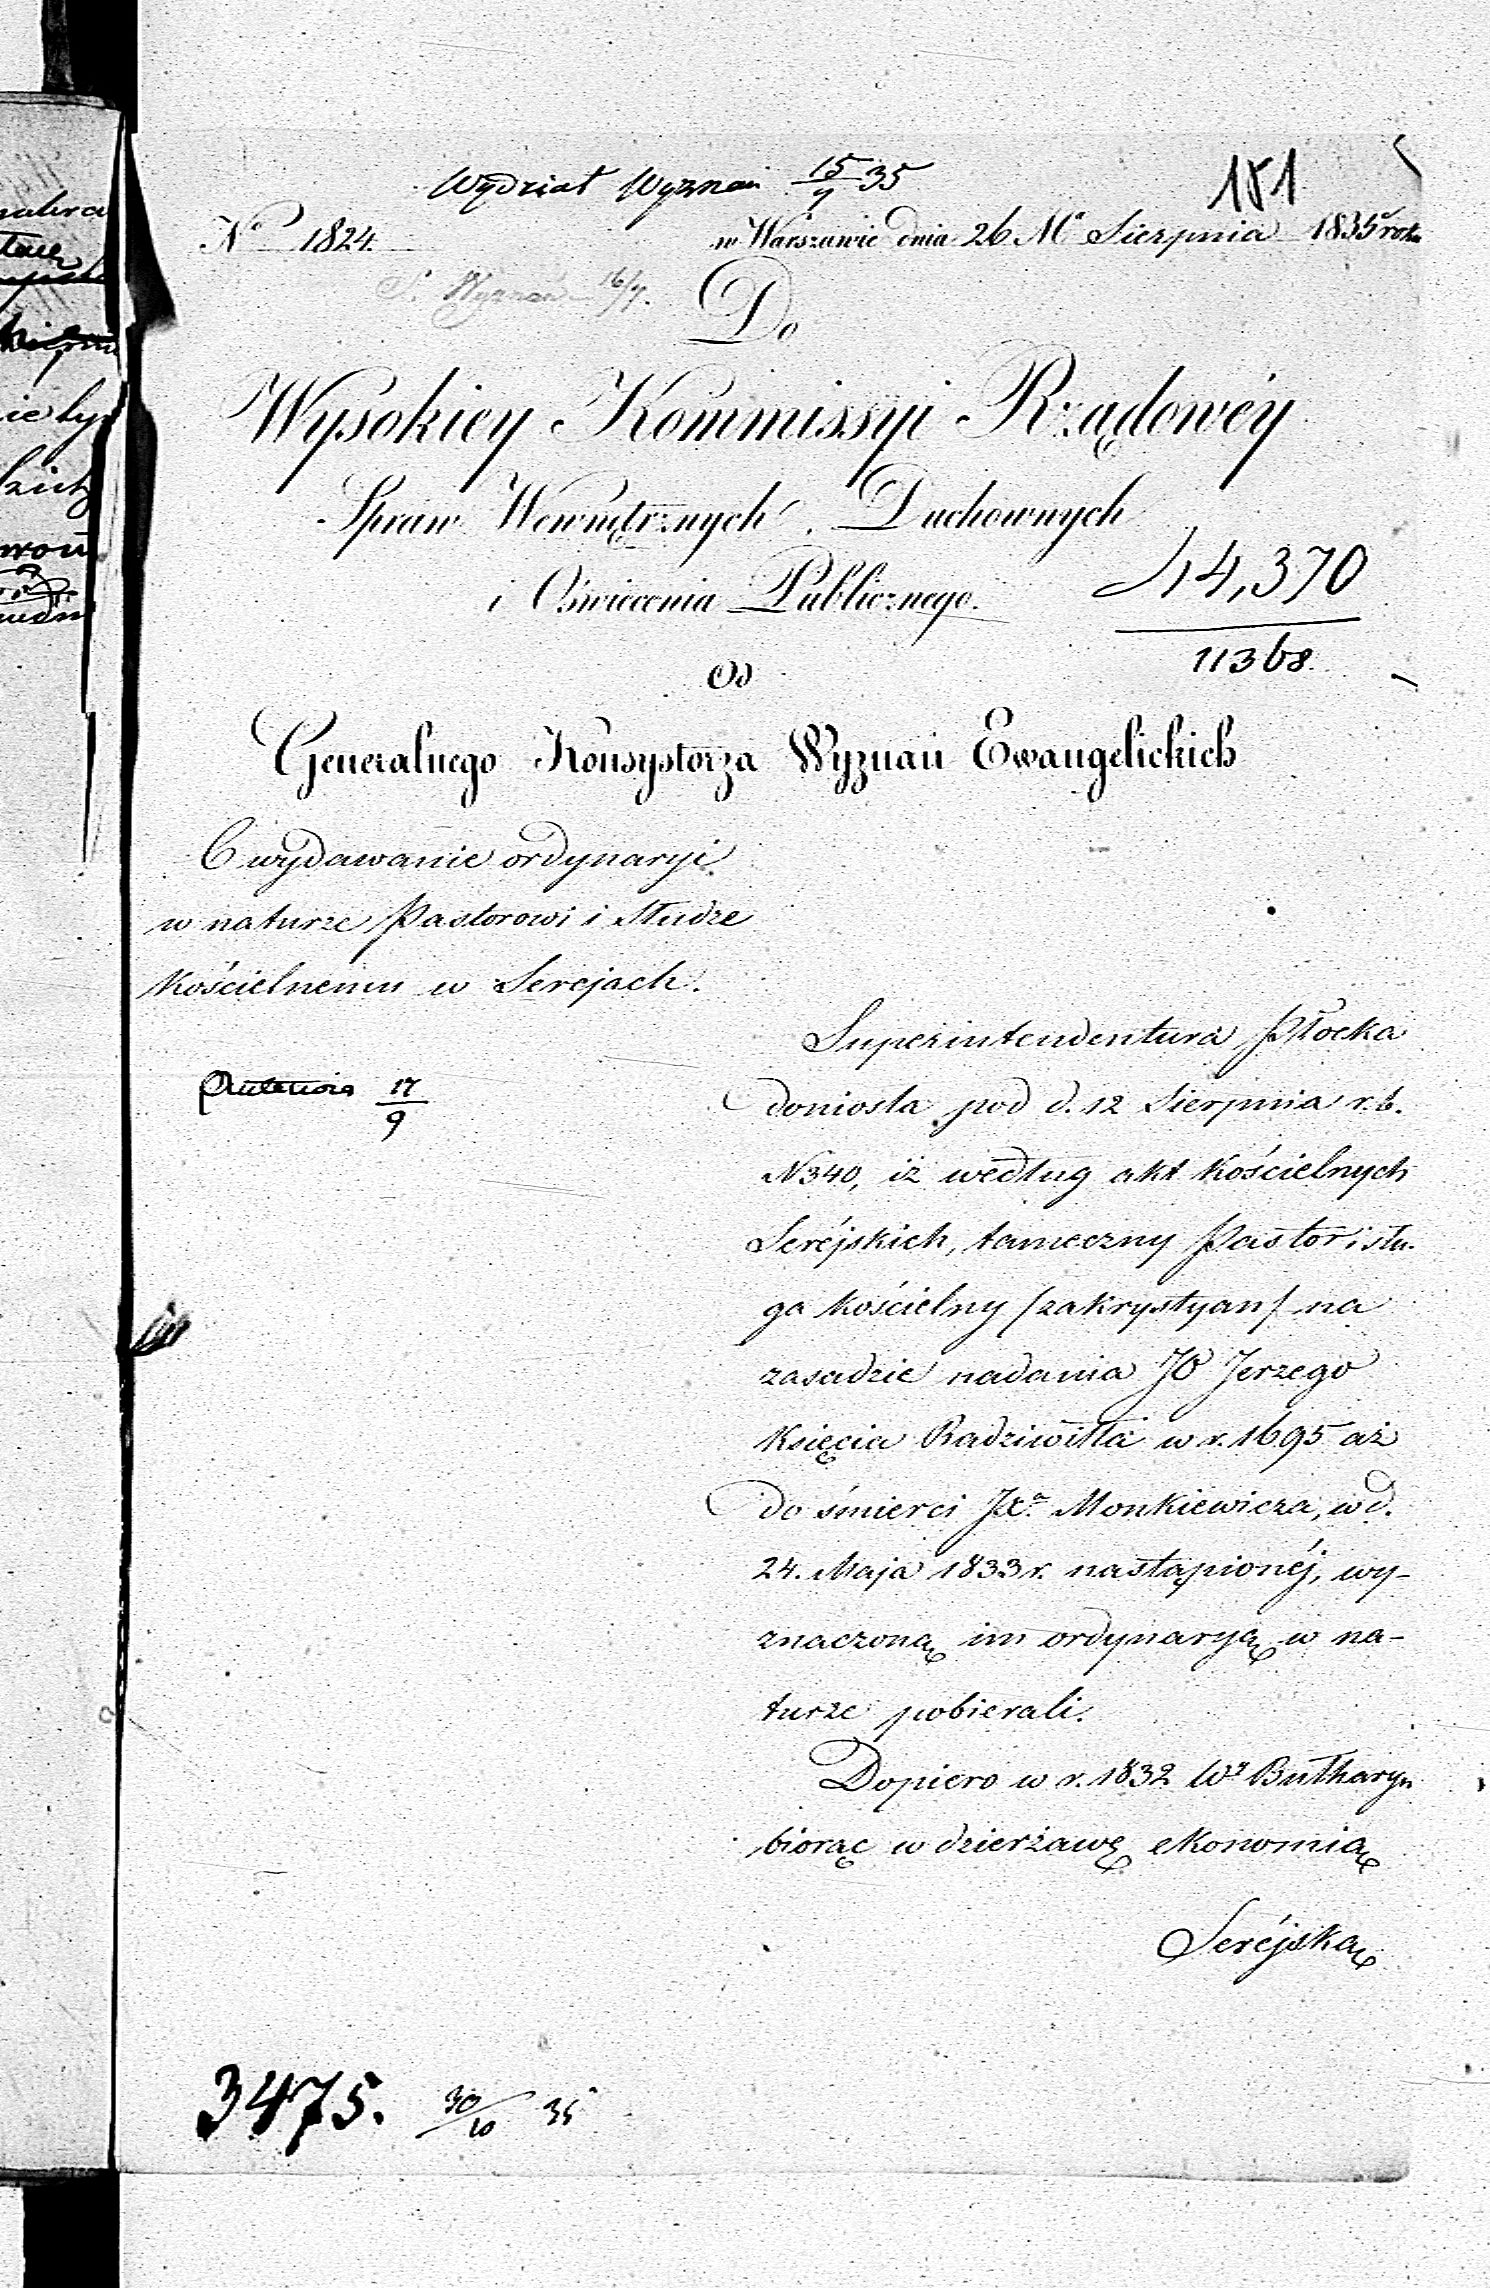 Wydział Wyznań 15/9 35
181
No 1824.
w Warszawie dnia 26 Ma Sierpnia 1835 roku
S. Wyznań 16/9.
Do
Wysokiey Kommissyi Rządowéy
Spraw Wewnętrznych, Duchownych
i Oświecenia Publicznego.
44,370
11368.
Od
Generalnego Konsystorza Wyznań Ewangelickich
O wydawanie ordynaryi
w naturze Pastorowi i Słudze
Kościelnemu w Serejach.
17/9
Superintendentura Płocka
doniosła pod d. 12 Sierpnia r. b.
N340, iż według akt Kościelnych
Seréjskich, tameczny Pastor i słu-
ga Kościelny /zakrystyan/ na
zasadzie nadania JO Jerzego
Księcia Radziwiłła w r. 1695 aż
do śmierci JXa. Monkiewicza, w d.
24. Maja 1833 r. nastąpionéj, wy-
znaczoną im ordynaryą w na-
turze pobierali.
Dopiero w r. 1832 Wy Bułharyn
biorąc w dzierżawę ekonomią
Seréjską
3475. 30/10 35